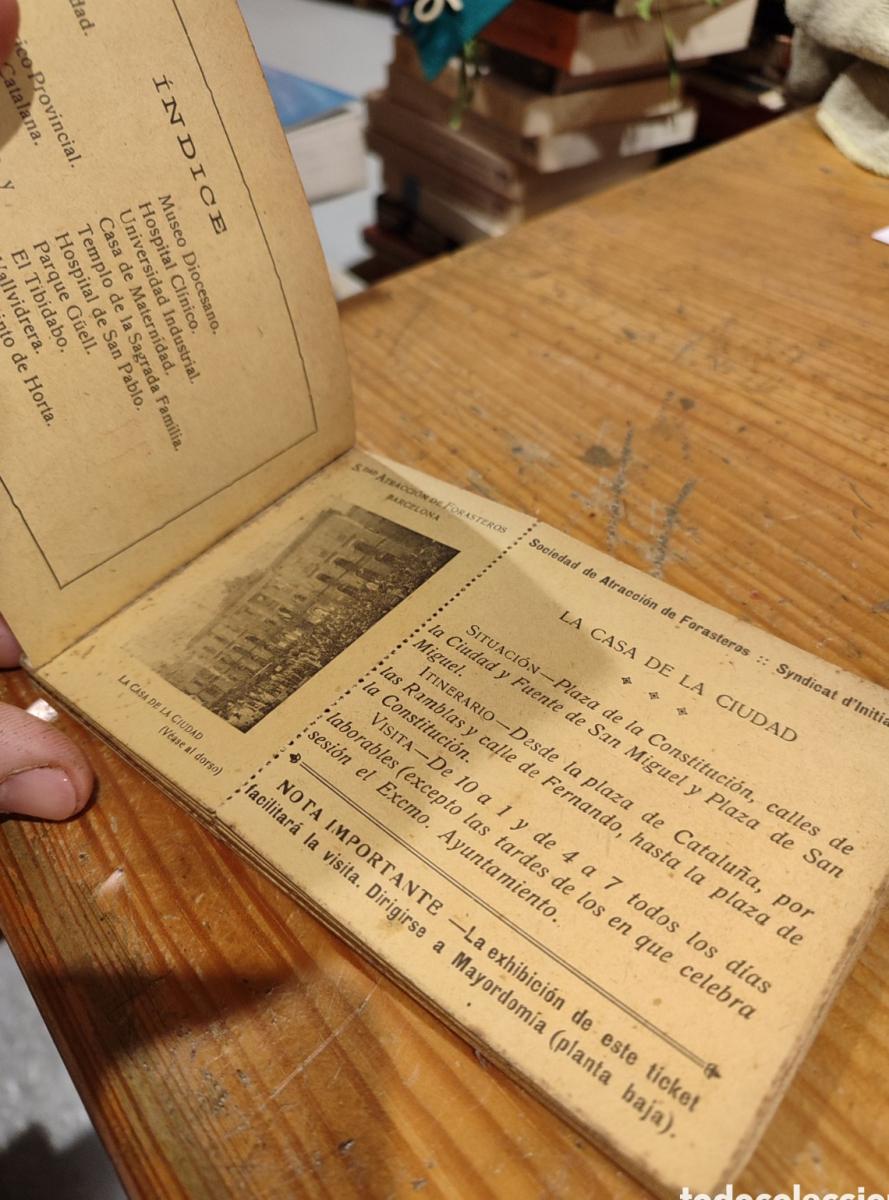 dad.
Provincial.
Catalana.
y
ÍNDICE
Museo Diocesano.
Hospital Clínico.
Universidad Industrial.
Casa de Maternidad.
Templo de la Sagrada Familia.
Hospital de San Pablo.
Parque Güell.
El Tibidabo.
Vallvidrera.
de Horta.
S.DAD ATRACCIÓN DE FORASTEROS
BARCELONA
LA CASA DE LA CIUDAD
(Véase al dorso)
Sociedad de Atracción de Forasteros :: Syndicat d'Initia
LA CASA DE LA CIUDAD
SITUACIÓN—Plaza de la Constitución, calles de
la Ciudad y Fuente de San Miguel y Plaza de San
Miguel.
ITINERARIO—Desde la plaza de Cataluña, por
las Ramblas y calle de Fernando, hasta la plaza de
la Constitución.
VISITA—De 10 a 1 y de 4 a 7 todos los días
laborables (excepto las tardes de los en que celebra
sesión el Excmo. Ayuntamiento.
NOTA IMPORTANTE —La exhibición de este ticket
facilitará la visita. Dirigirse a Mayordomía (planta baja).
todocoleccio